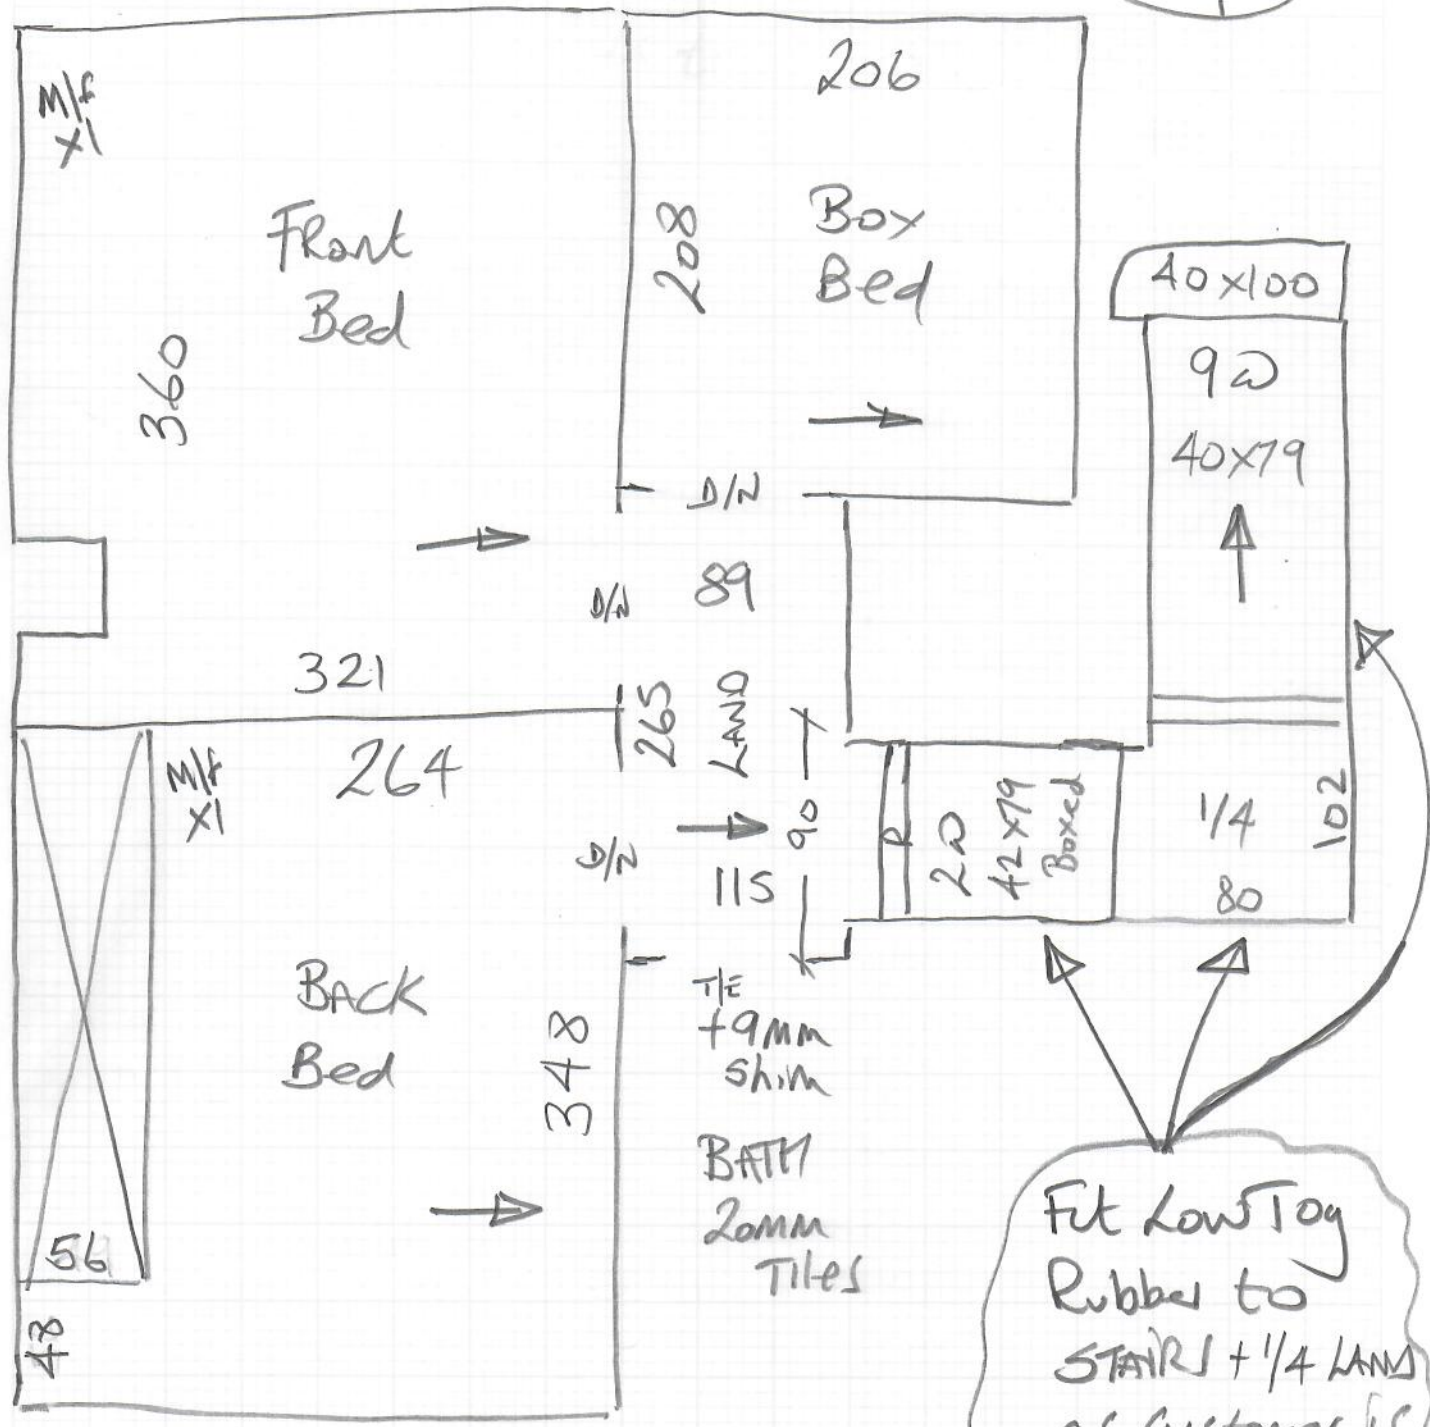 M/f
X1
Front
Bed
360
321
206
208
Box
Bed
D/N
D/N
89
265
LAND
90
115
D/N
40x100
9@
40x79
R
2@
42x79
Boxed
1/4
80
102
M/f
X1
264
BACK
Bed
348
56
48
T/E
+9mm
Shim
BATH
20mm
Tiles
Fit Low Tog
Rubber to
STAIRS + 1/4 LAND